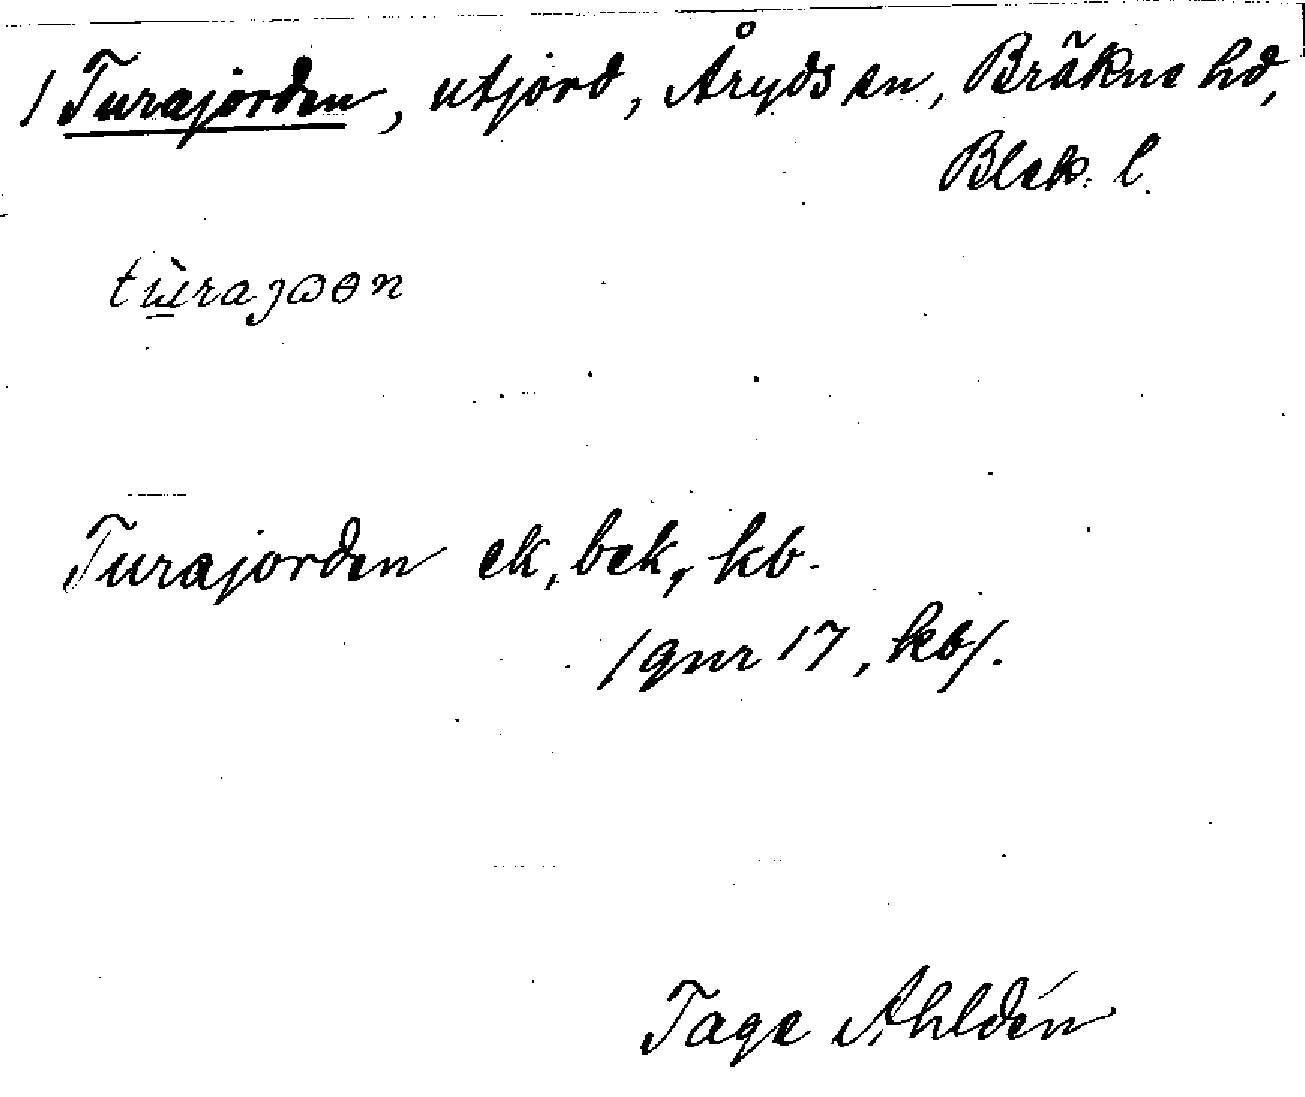 / Turajorden, utjord, Åryds sn, Bräkne hd,
Blek. l.
tùrajωən
Turajorden ek, bek, kb.
/gnr 17, kb/.
Tage Ahldén